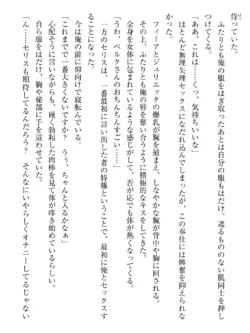 侍っていた。
ふたりとも俺の服をはぎ取ったあとは自分の服もはだけ、遮るもののない肌同士を押し
つけてくる。
「ああ、これは……くっ、気持ちいい」
なしと無理だ対セックスになだれ込んだが、この奉仕には興奮を抑えられな
フィーアとジュリエッタの爆乳が腕を挿まし、しなやかな腕が背中や胸に回される。
その上、ふたりとも俺の唇を奪い合うように積極的なキスをしてきた。
全身を女体に包まれているような感じがして、否が応でも体が熱くなってくる。
「うわ、ベルクさんのおちんちんすごい……」
一方のセリスは、一番最初に言い出した者の特権ということで、最初に俺とセックスす
ることになった。
今は俺の前に仰向けで寝転んでいる。
「これまでで一番大きくないですか？　うぅ、ちゃんと入るかなぁ」
心配そうに言いながらも、硬く勃起した肉棒を見て体が疼き始めているらしい。
自ら服をはだけ、胸や秘部に手を這わせていた。
「んっ……セリスも期待してるんだろう？　そんなにいやらしくオナニーしてるじゃない